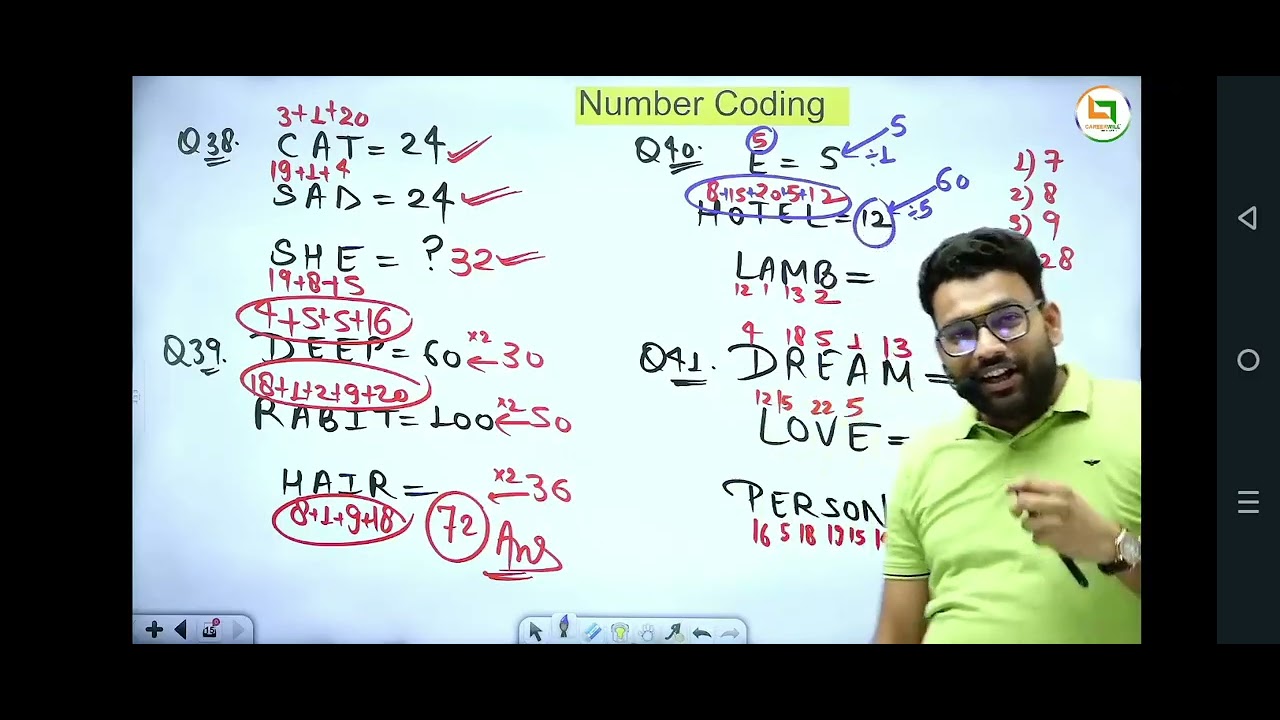 Number Coding
CAREERWILL
3+1+20
Q38. CAT = 24
19+1+4
SAD = 24
SHE = ? 32
19+8+5
4+5+5+16
Q39. DEEP = 60 ×2 30
18+1+2+9+20
RABIT = 100 ×2 50
HAIR = ×2 36
8+1+9+18
72 Ans
5
Q40. E = 5 ÷1 5
8+15+20+5+12
HOTEL = 12 ÷5 60
LAMB =
12 1 13 2
1) 7
2) 8
3) 9
28
4 18 5 1 13
Q41. DREAM =
12 15 22 5
LOVE =
PERSON
16 5 18 19 15
15